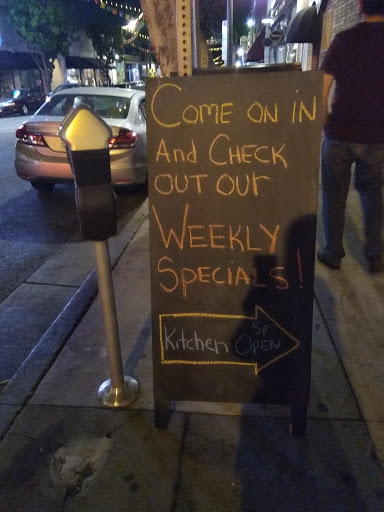 Come on in
And Check
out our
Weekly
Specials!
5p
Kitchen Open